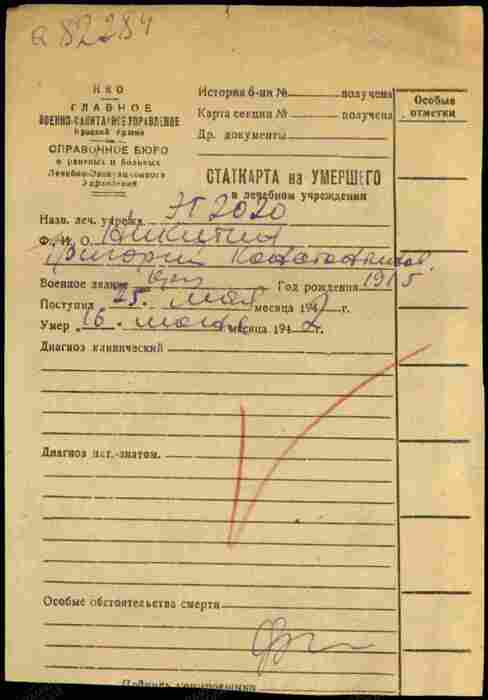 а 82284
НКО
ГЛАВНОЕ
ВОЕННО-САНИТАРНОЕ УПРАВЛЕНИЕ
Красной Армии
СПРАВОЧНОЕ БЮРО
о раненых и больных
Лечебно-Эвакуационного
Управления
История б-ни № получена
Карта секции № получена
Др. документы
Особые отметки
СТАТКАРТА на УМЕРШЕГО
в лечебном учреждении
Назв. леч. учрежд. ЭГ 2020
Ф. И. О. Никитин
Григорий
Военное звание Год рождения 1915
Поступил 25. мая месяца 1942 г.
Умер 16. месяца 1942 г.
Диагноз клинический
Диагноз пат.-анатом.
Особые обстоятельства смерти